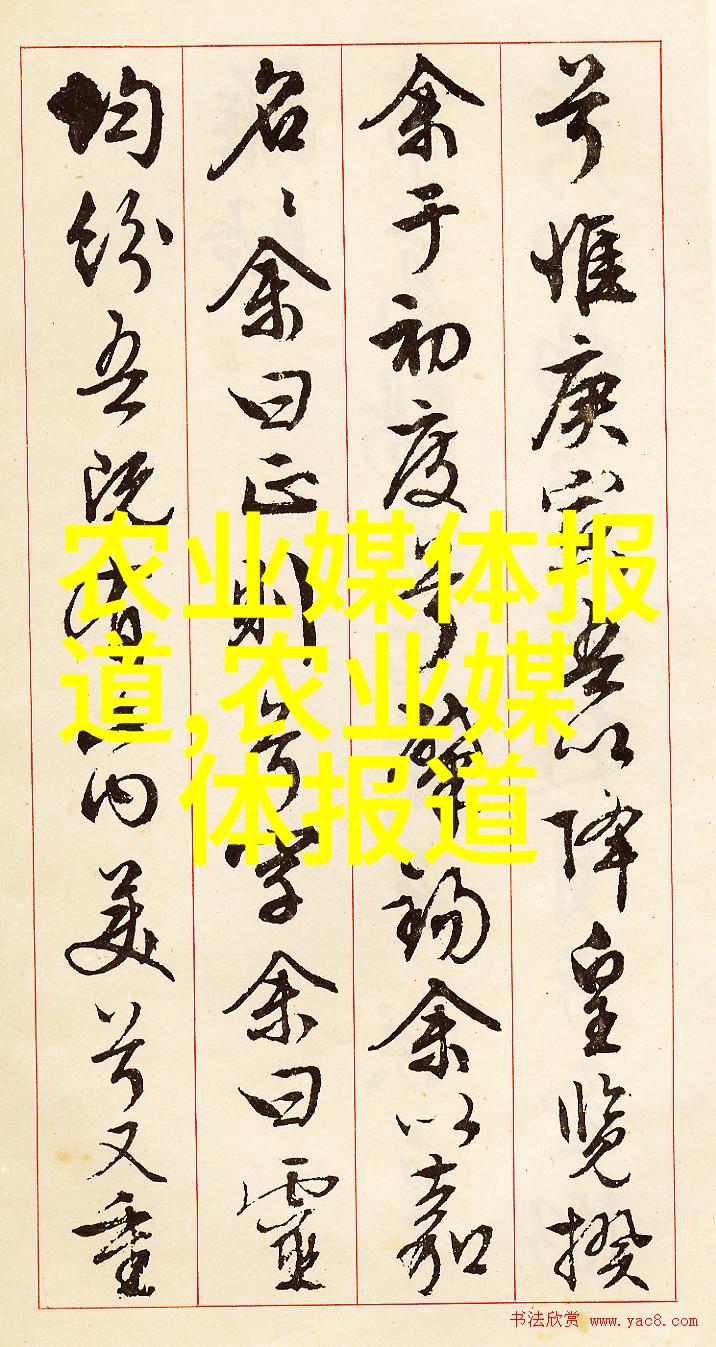 兮惟庚寅吾以降皇覽揆
余于初度兮肇錫余以嘉
名〻余曰正則兮字余曰靈
均紛吾既有此内美兮又重
农业媒体报
道,农业媒
体报道
书法欣赏 www.yac8.com